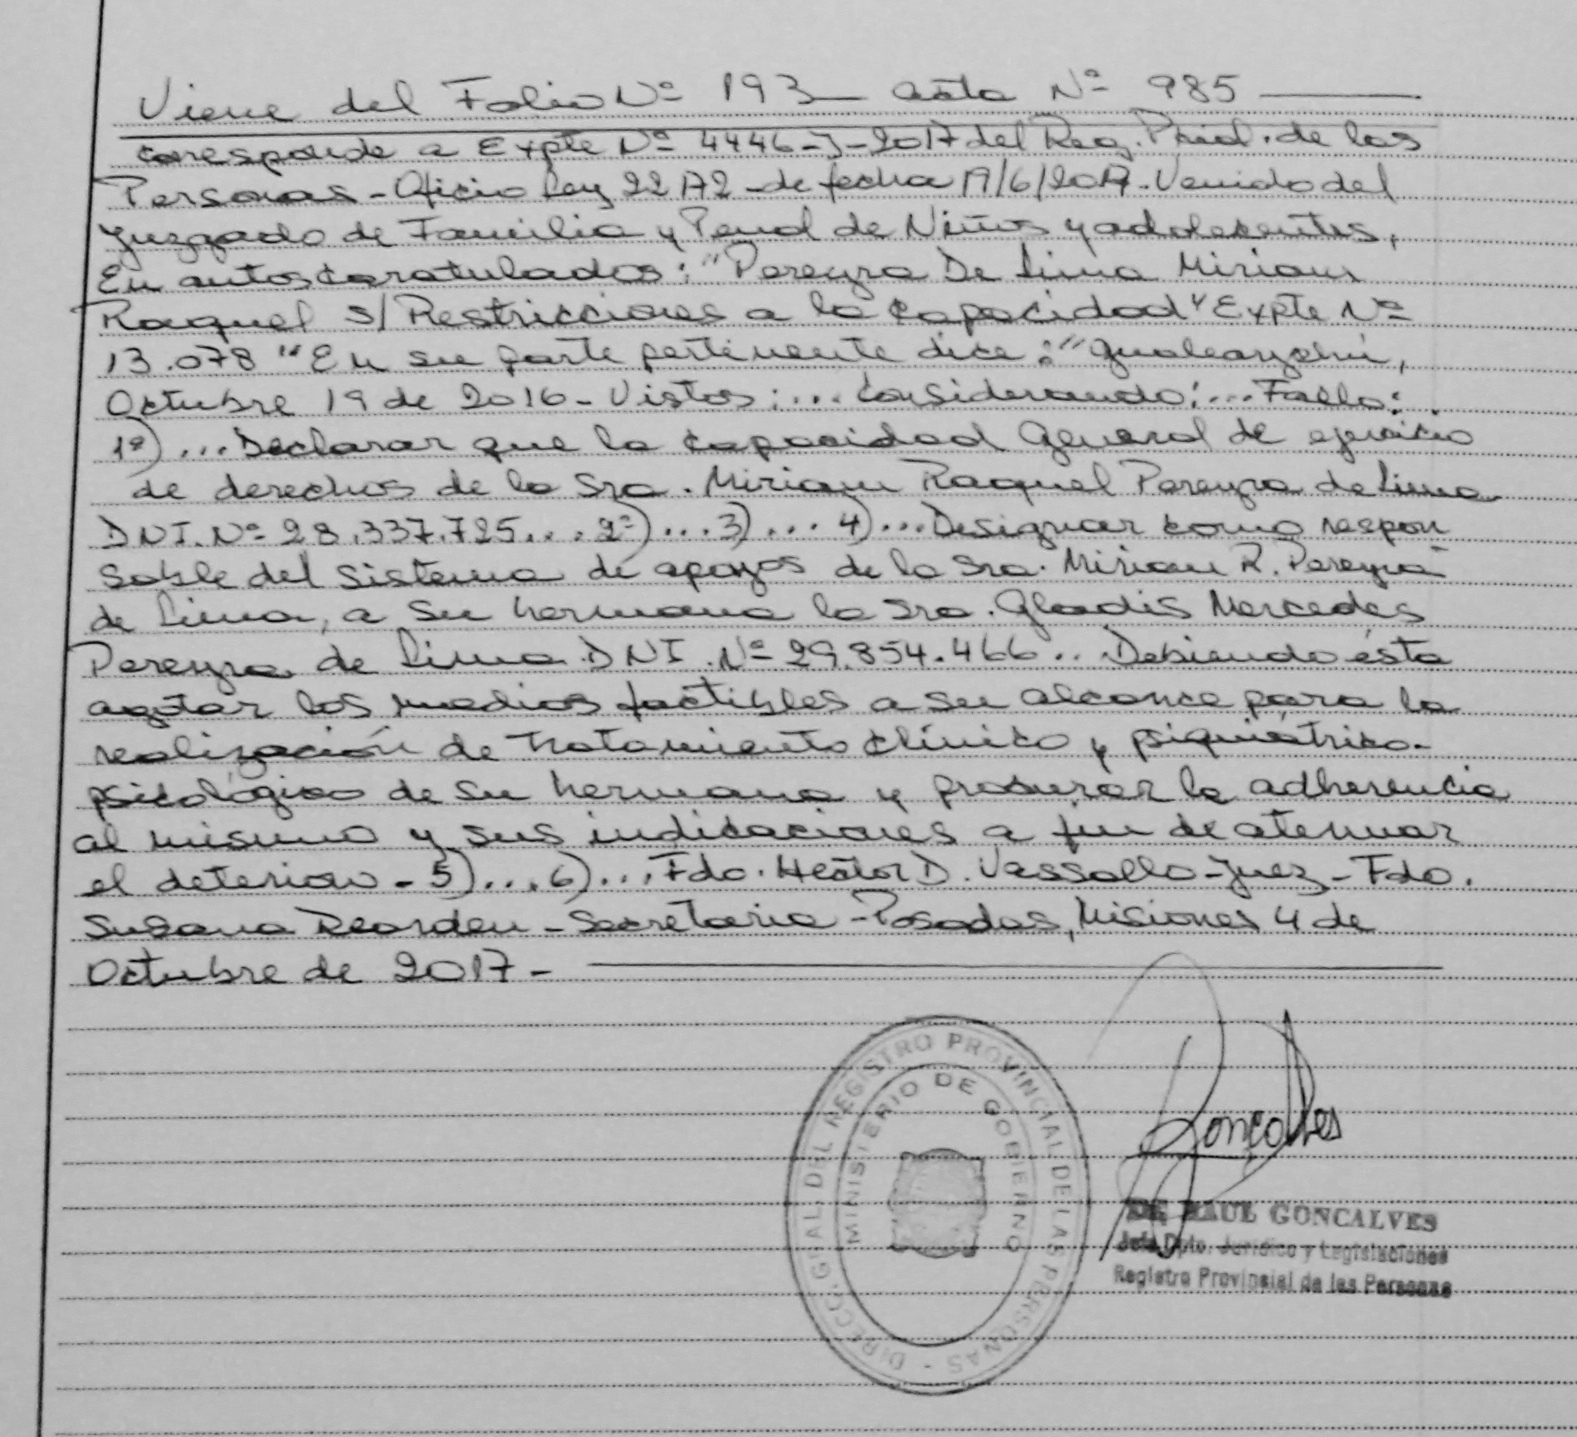 Viene del Folio Nº 193 - acta Nº 985
corresponde a Expte Nº 4446-J-2017 del Reg. Pcial. de las
Personas - Oficio Ley 22172 - de fecha 19/6/2017. Venido del
Juzgado de Familia y Penal de Niños y adolescentes,
En autos caratulados: "Pereyra De Lima Miriam
Raquel s/ Restricciones a la capacidad" Expte Nº
13.078 "En su parte pertinente dice: "Gualeguaychú,
Octubre 19 de 2016 - Vistos:... Considerando:... Fallo:
1º)... Declarar que la capacidad General de ejercicio
de derechos de la Sra. Miriam Raquel Pereyra de Lima
DNI. Nº 28.337.725... 2º)... 3)... 4)... Designar como respon
sable del sistema de apoyos de la Sra. Miriam R. Pereyra
de Lima, a su hermana la Sra. Gladis Mercedes
Pereyra de Lima. DNI. Nº 29.854.466.. Debiendo ésta
agotar los medios factibles a su alcance para la
realización de tratamiento clínico y psiquiátrico-
psicológico de su hermana y procurar la adherencia
al mismo y sus indicaciones a fin de atenuar
el deterioro - 5)... 6)... Fdo. Héctor D. Vassallo - Juez - Fdo.
Susana Rearden - Secretaria - Posadas, Misiones 4 de
Octubre de 2017 -
DIRECC. GRAL. DEL REGISTRO PROVINCIAL DE LAS PERSONAS
MINISTERIO DE GOBIERNO
Goncalves
RAUL GONCALVES
Jefe Dpto. Jurídico y Legislaciones
Registro Provincial de las Personas